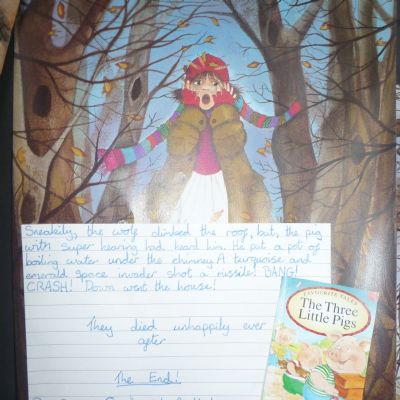 Sneakily, the wolf climbed the roof, but, the pig
with super hearing had heard him. He put a pot of
boiling water under the chimney. A turquoise and
emerald space invader shot a missile! BANG!
CRASH! Down went the house!
They died unhappily ever
after
The End!
FAVOURITE TALES
The Three
Little Pigs